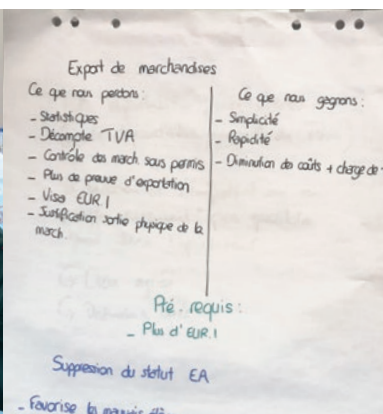 Export de marchandises
Ce que nous perdons :
- Statistiques
- Décompte TVA
- Contrôle des march. sous permis
- Plus de preuve d'exportation
- Visa EUR.1
- Justification sortie physique de la
march.
Ce que nous gagnons :
- Simplicité
- Rapidité
- Diminution des coûts + charge de
Pré-requis :
- Plus d'EUR.1
Suppression du statut EA
- Favorise les mauvais